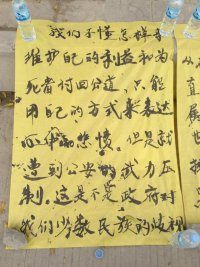 我们不懂怎样
维护自己的利益和为
死者讨回公道，只能
用自己的方式来表达
心中的悲愤。但是就
遭到公安的武力压
制，这是不是政府对
我们少数民族的歧视
从
直